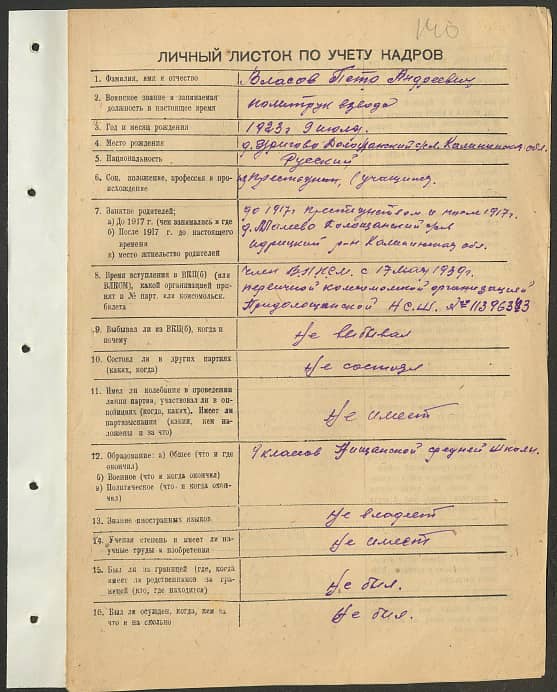 140
ЛИЧНЫЙ ЛИСТОК ПО УЧЕТУ КАДРОВ
1. Фамилия, имя и отчество
Власов Петр Андреевич
2. Воинское звание и занимаемая
должность в настоящее время
политрук взвода
3. Год и месяц рождения
1923 г 9 июля.
4. Место рождения
д. р/с Калининская обл.
5. Национальность
Русский
6. Соц. положение, профессия и про-
исхождение
Крестьянин, (учащийся
7. Занятие родителей:
а) До 1917 г. (чем занимались и где
б) После 1917 г. до настоящего
времени
в) место жительство родителей
до 1917г крестьянством и после 1917г.
д. Малево р/с
Идрицкий р-н Калининская обл.
8. Время вступления в ВКП(б) (или
ВЛКСМ), какой организацией при-
нят и № парт. или комсомольск.
билета
член ВЛКСМ с 17 мая 1939г.
первичной комсомольской организацией
Н.С.Ш. №
9. Выбывал ли из ВКП(б), когда и
почему
Не выбывал
10. Состоял ли в других партиях
(каких, когда)
Не состоял
11. Имел ли колебания в проведении
линии партии, участвовал ли в оп-
позициях (когда, каких). Имеет ли
партвзыскания (какия, кем на-
ложены и за что)
Не имеет
12. Образование: а) Общее (что и где
окончил)
б) Военное (что и когда окончил)
в) Политическое (что и когда окон-
чил)
9 классов Нищанской средней школы.
13. Знание иностранных языков
Не владеет
14. Ученая степень и имеет ли на-
учные труды и изобретения
Не имеет
15. Был ли за границей (где, когда
имеет ли родственников за гра-
ницей (кто, где находится)
Не был.
16. Был ли осужден, когда, кем за
что и на сколько
Не был.